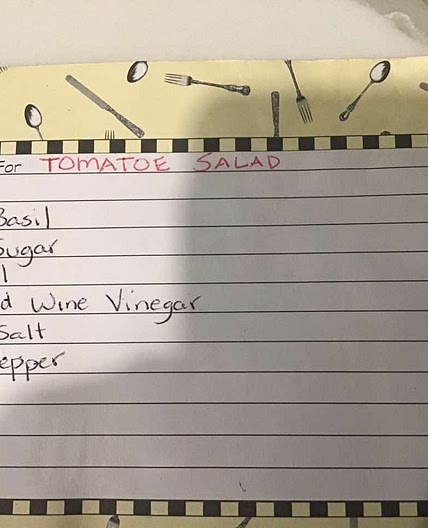 For TOMATOE SALAD
Basil
Sugar
l
d Wine Vinegar
Salt
epper